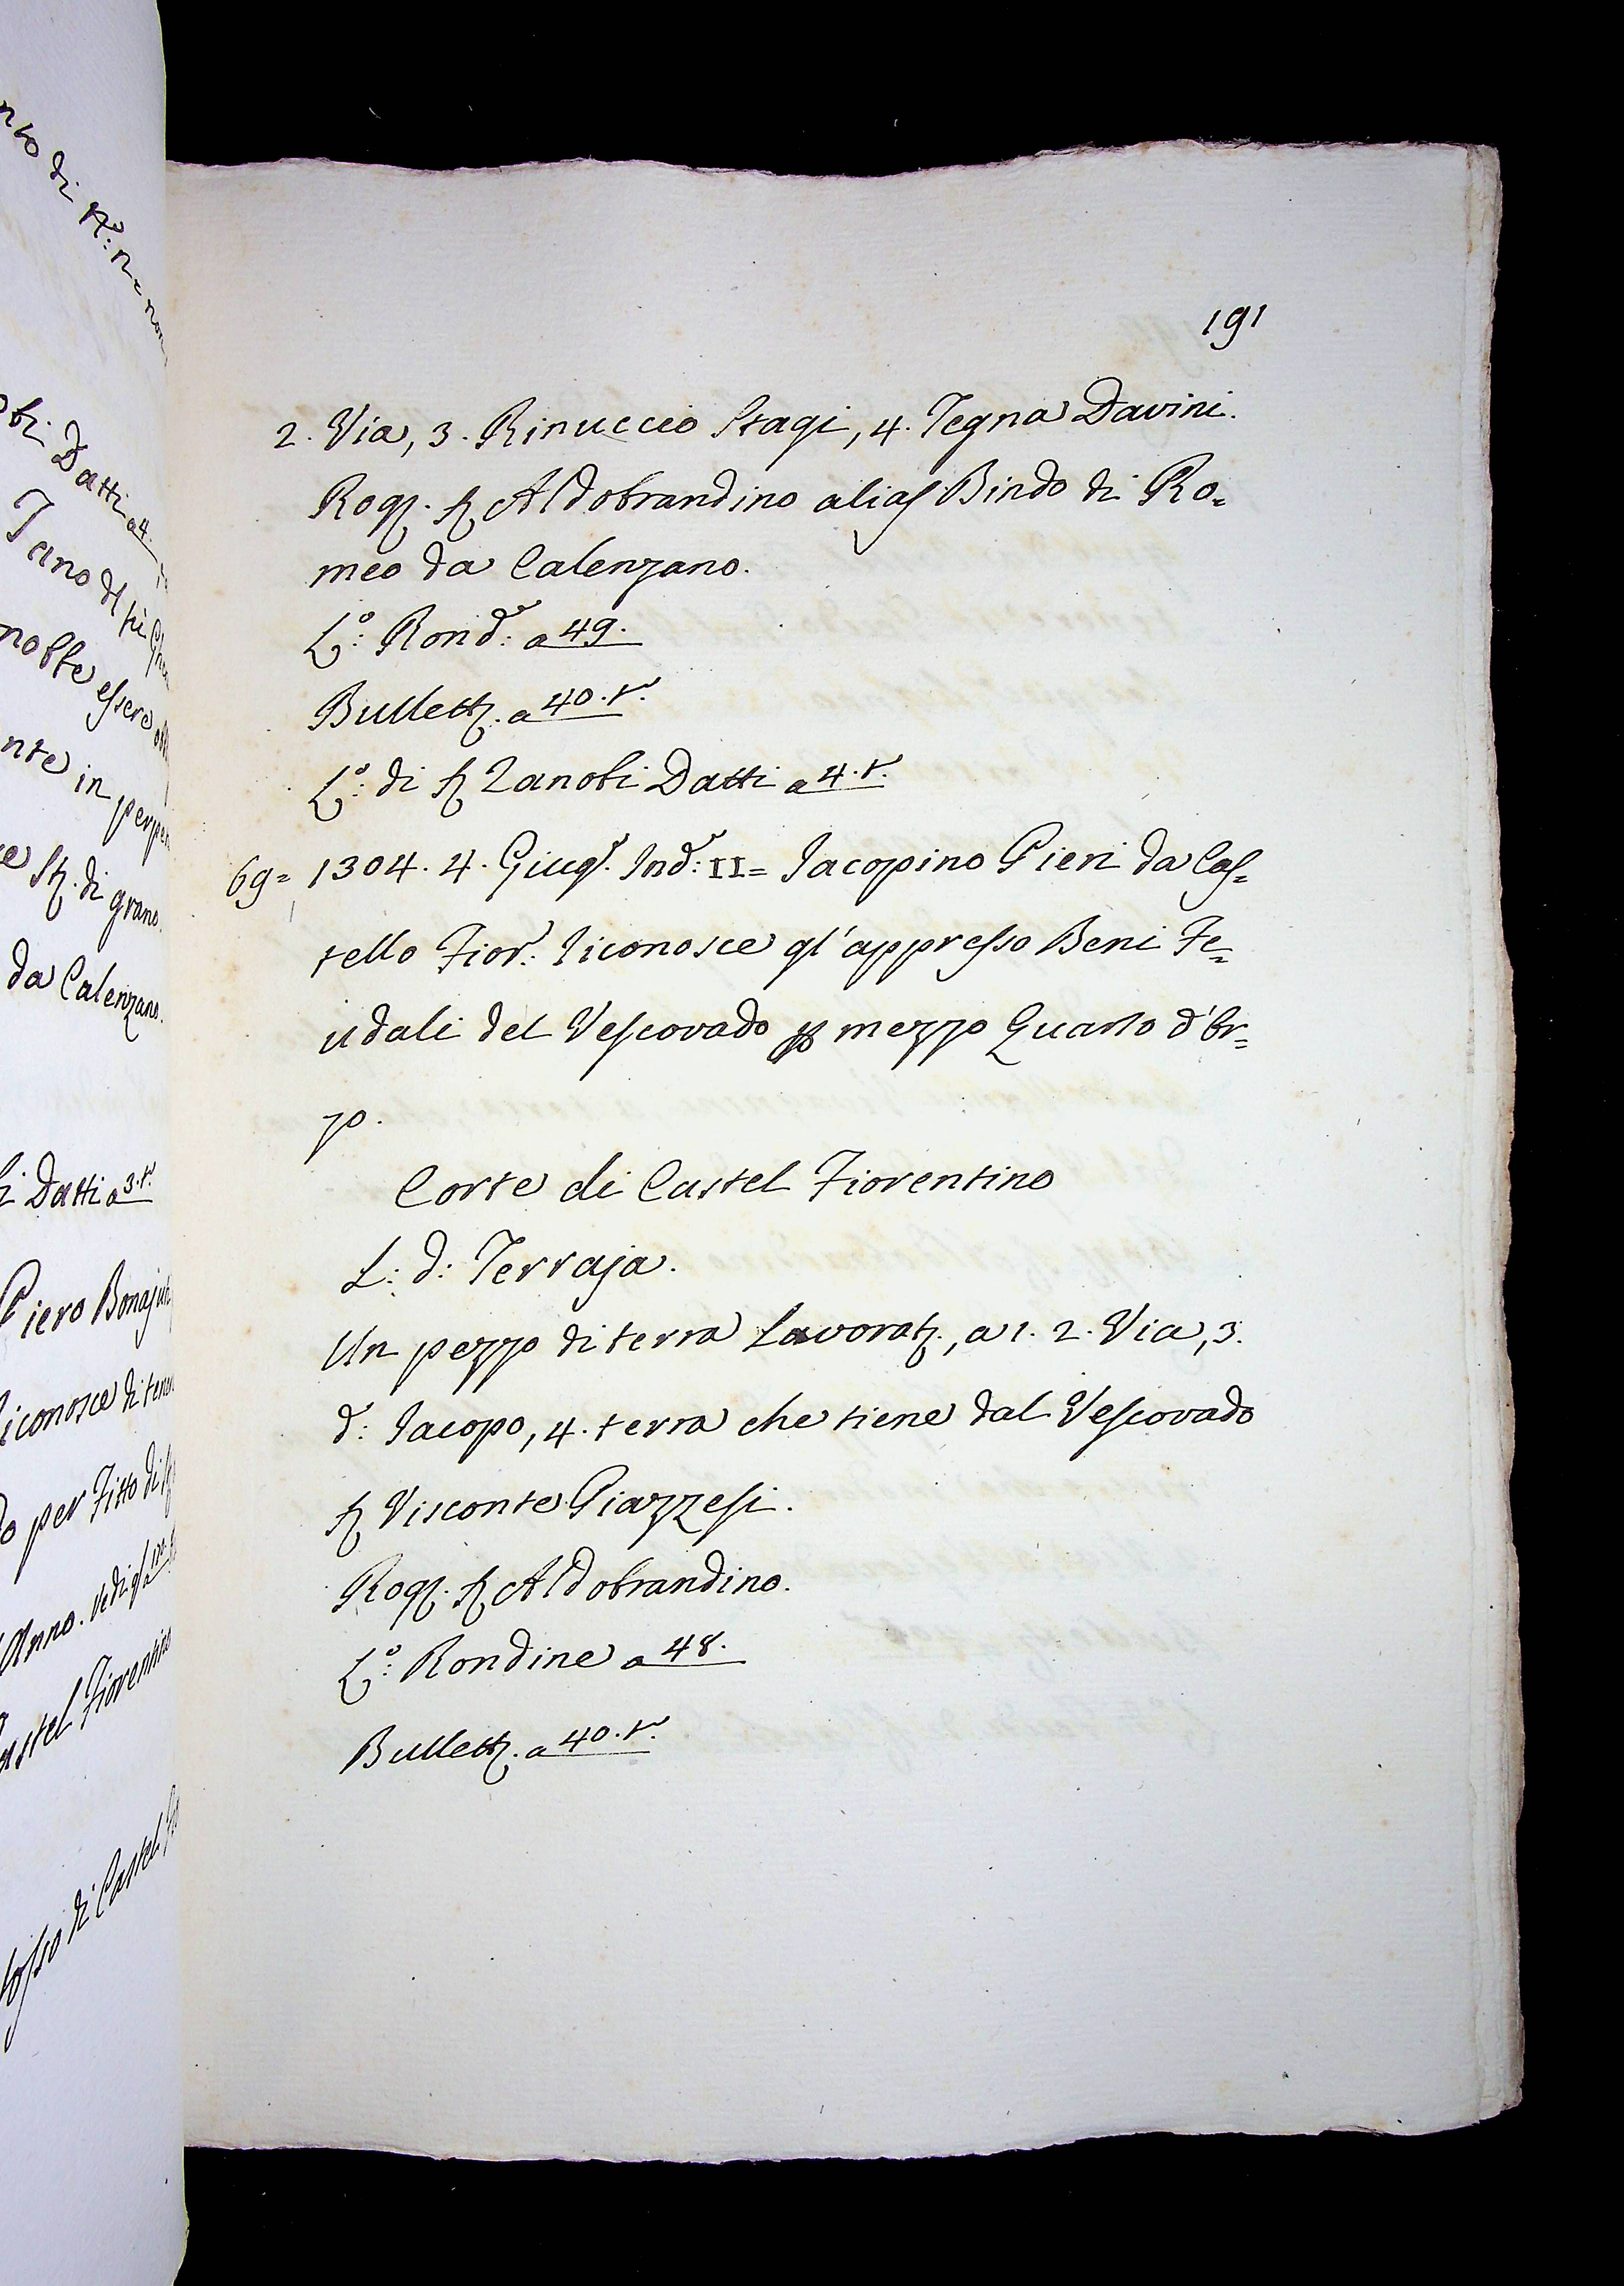 191
2. Via, 3. Rinuccio Stagi, 4. Tegna Davini.
Rog. S. Aldobrandino alias Bindo di Ro=
meo da Calenzano.
L.o: Rond.e: a 49.
Bullett. a 40. t.
L.o: di S. Zanobi Datti a 4. t.
69= 1304. 4. Giug. Ind: II= Jacopino Pieri da Cas=
tello Fior. riconosce gl'appresso Beni Fe=
udali del Vescovado p mezzo Quarto d'Or=
zo.
Corte di Castel Fiorentino
L: d: Terraja.
Un pezzo di terra lavorat., a 1. 2. Via, 3.
d: Jacopo, 4. terra che tiene dal Vescovado
S. Visconte Piazzesi.
Rog. S. Aldobrandino.
L.o: Rondine a 48.
Bullett. a 40. t.
di
Datti a 4.
Jano
essere
in
di grano.
da Calenzano.
Datti a 3. t.
Piero
riconosce di
per Fitto di
Anno.
Fiorentino
di Castel